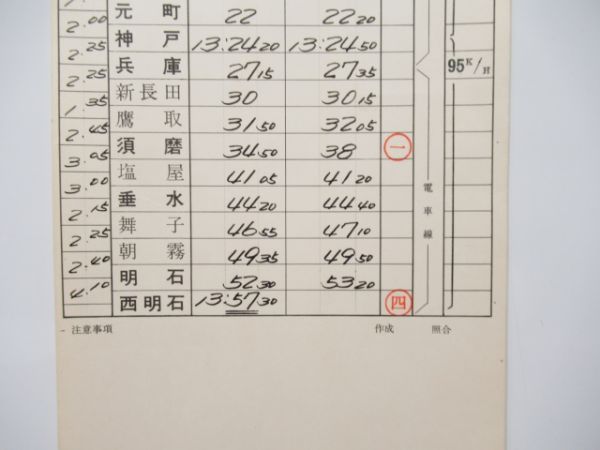 2.00 元町 22 22 20
2.25 神戸 13:24 20 13:24 50
2.25 兵庫 27 15 27 35 95K/H
1.35 新長田 30 30 15
2.45 鷹取 31 50 32 05
3.05 須磨 34 50 38 一
3.00 塩屋 41 05 41 20
2.15 垂水 44 20 44 40
2.25 舞子 46 55 47 10
2.40 朝霧 49 35 49 50
4.10 明石 52 30 53 20
西明石 13:57 30 四
電車線
注意事項 作成 照合